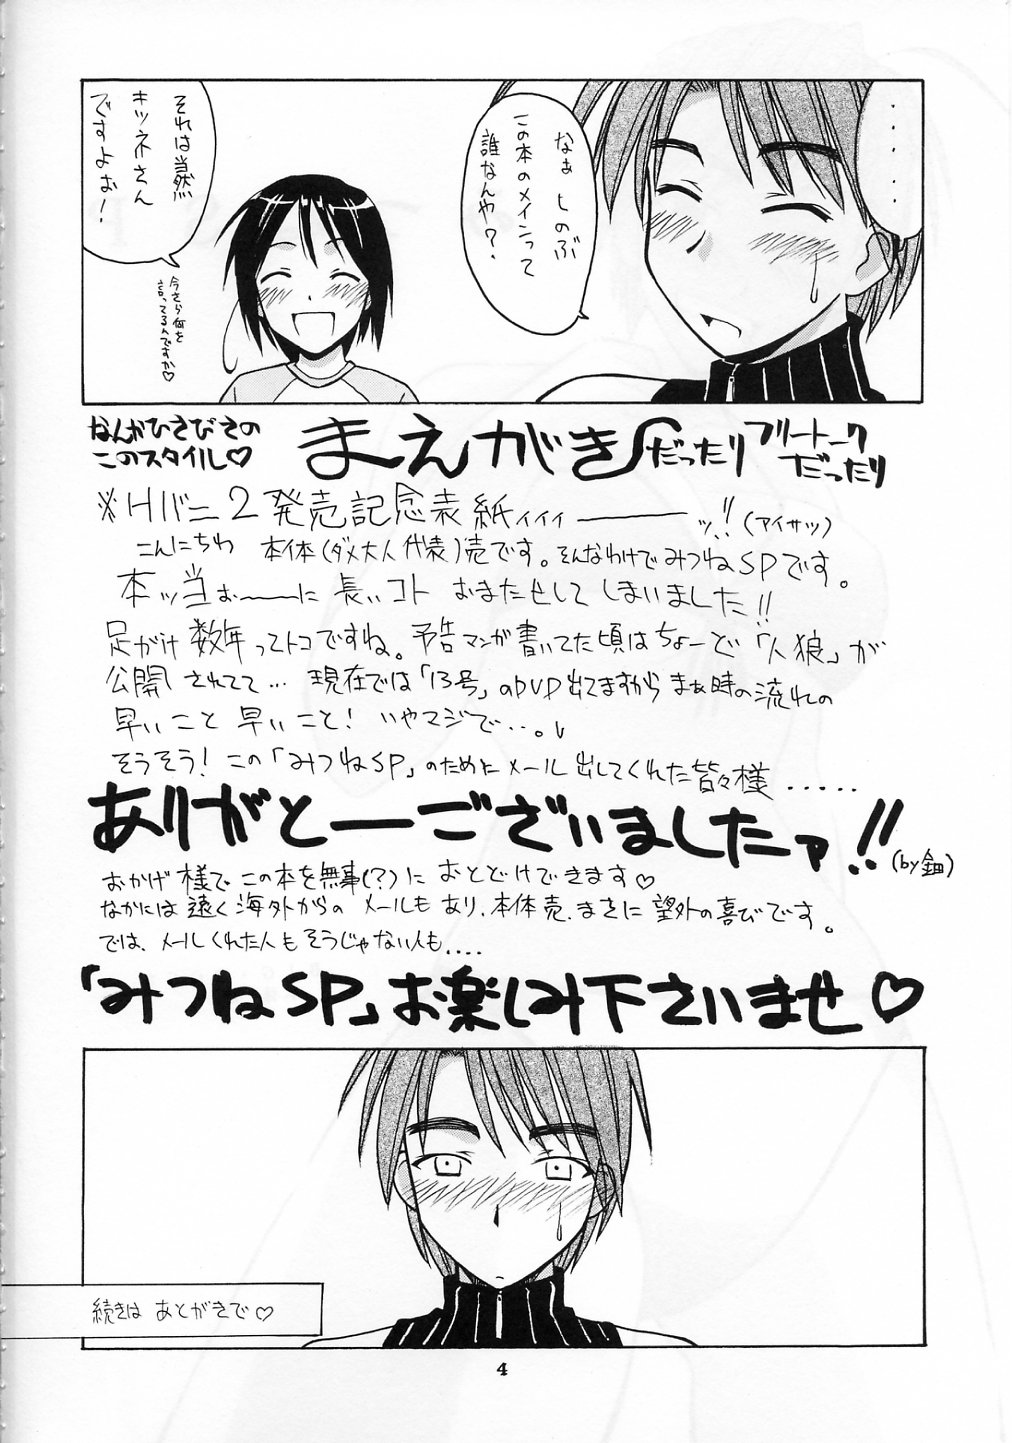 ・・・・・
なぁ しのぶ
この本のメインって
誰なんや？
それは当然
キツネさん
ですよぉ！
今さら何を
言ってるんですか♡
なんかひさびさの
このスタイル♡
まえがき
だったり
フリートーク
だったり
※Hバニ2発売記念表紙ィィィ────ッ!!(アイサツ)
こんにちわ 本体(ダメ大人代表)売です。そんなわけでみつねSPです。
本ッ当ぉ〜〜〜に 長いコト おまたせして しまいました!!
足がけ 数年ってトコですね。予告マンガ書いてた頃はちょーど「人狼」が
公開されてて… 現在では「13号」のDVD出てますからまぁ時の流れの
早いこと 早いこと！いやマジで…。
そうそう！この「みつねSP」のためにメール出してくれた皆々様.....
ありがとーございましたァ!!
おかげ様でこの本を無事(?)に おとどけできます♡
なかには遠く海外からの メールもあり、本体売、まさに望外の喜びです。
では、メールくれた人もそうじゃない人も....
「みつねSP」お楽しみ下さいませ♡
続きは あとがきで♡
4